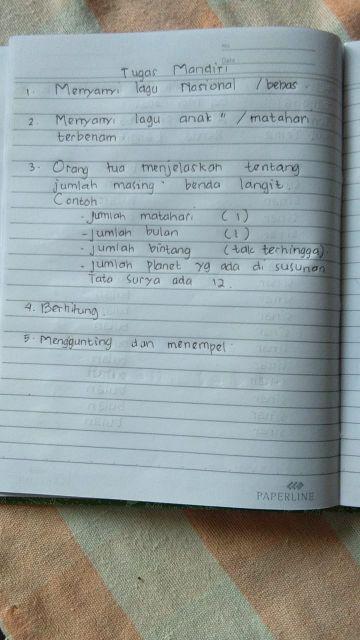 No.
Date
Tugas Mandiri
1. Menyanyi lagu Nasional / bebas.
2. Menyanyi lagu anak" / matahari
terbenam
3. Orang tua menjelaskan tentang
jumlah masing" benda langit.
Contoh
- Jumlah matahari (1)
- Jumlah bulan (1)
- Jumlah bintang (tak terhingga)
- Jumlah planet yg ada di susunan
Tata Surya ada 12.
4. Berhitung.
5. Menggunting dan menempel.
PAPERLINE